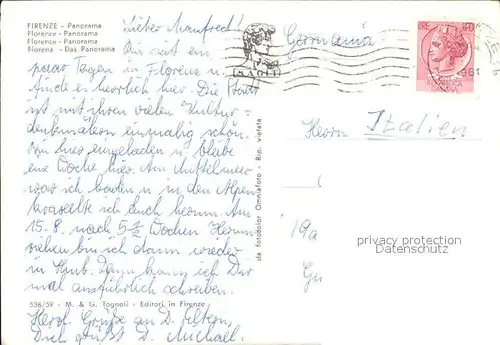 FIRENZE - Panorama
Florence - Panorama
Florence - Panorama
Florenz - Das Panorama
Lieber Manfred!
Bin seit ein
paar Tagen in Florenz u.
finde es herrlich hier. Die Stadt
ist mit ihren vielen Kultur=
denkmälern einmalig schön.
Bin hier eingeladen u. bleibe
eine Woche hier. Am Mittelmeer
war ich baden u. in den Alpen
kraxelte ich auch herum. Am
15.8. nach 5½ Wochen Herum
ziehen bin ich dann wieder
in Hmb. Dann kann ich Dir
mal ausführlich schreiben.
538/59 - M. & G. Tognoli - Editori in Firenze
Herzl. Grüße an D. Eltern,
Dich grüßt D. Michael.
da fotocolor Omniafoto - Rip. vietata
NAOLI
Germania
LIRE 40
1961
Herrn Italien
19a
privacy protection
Datenschutz